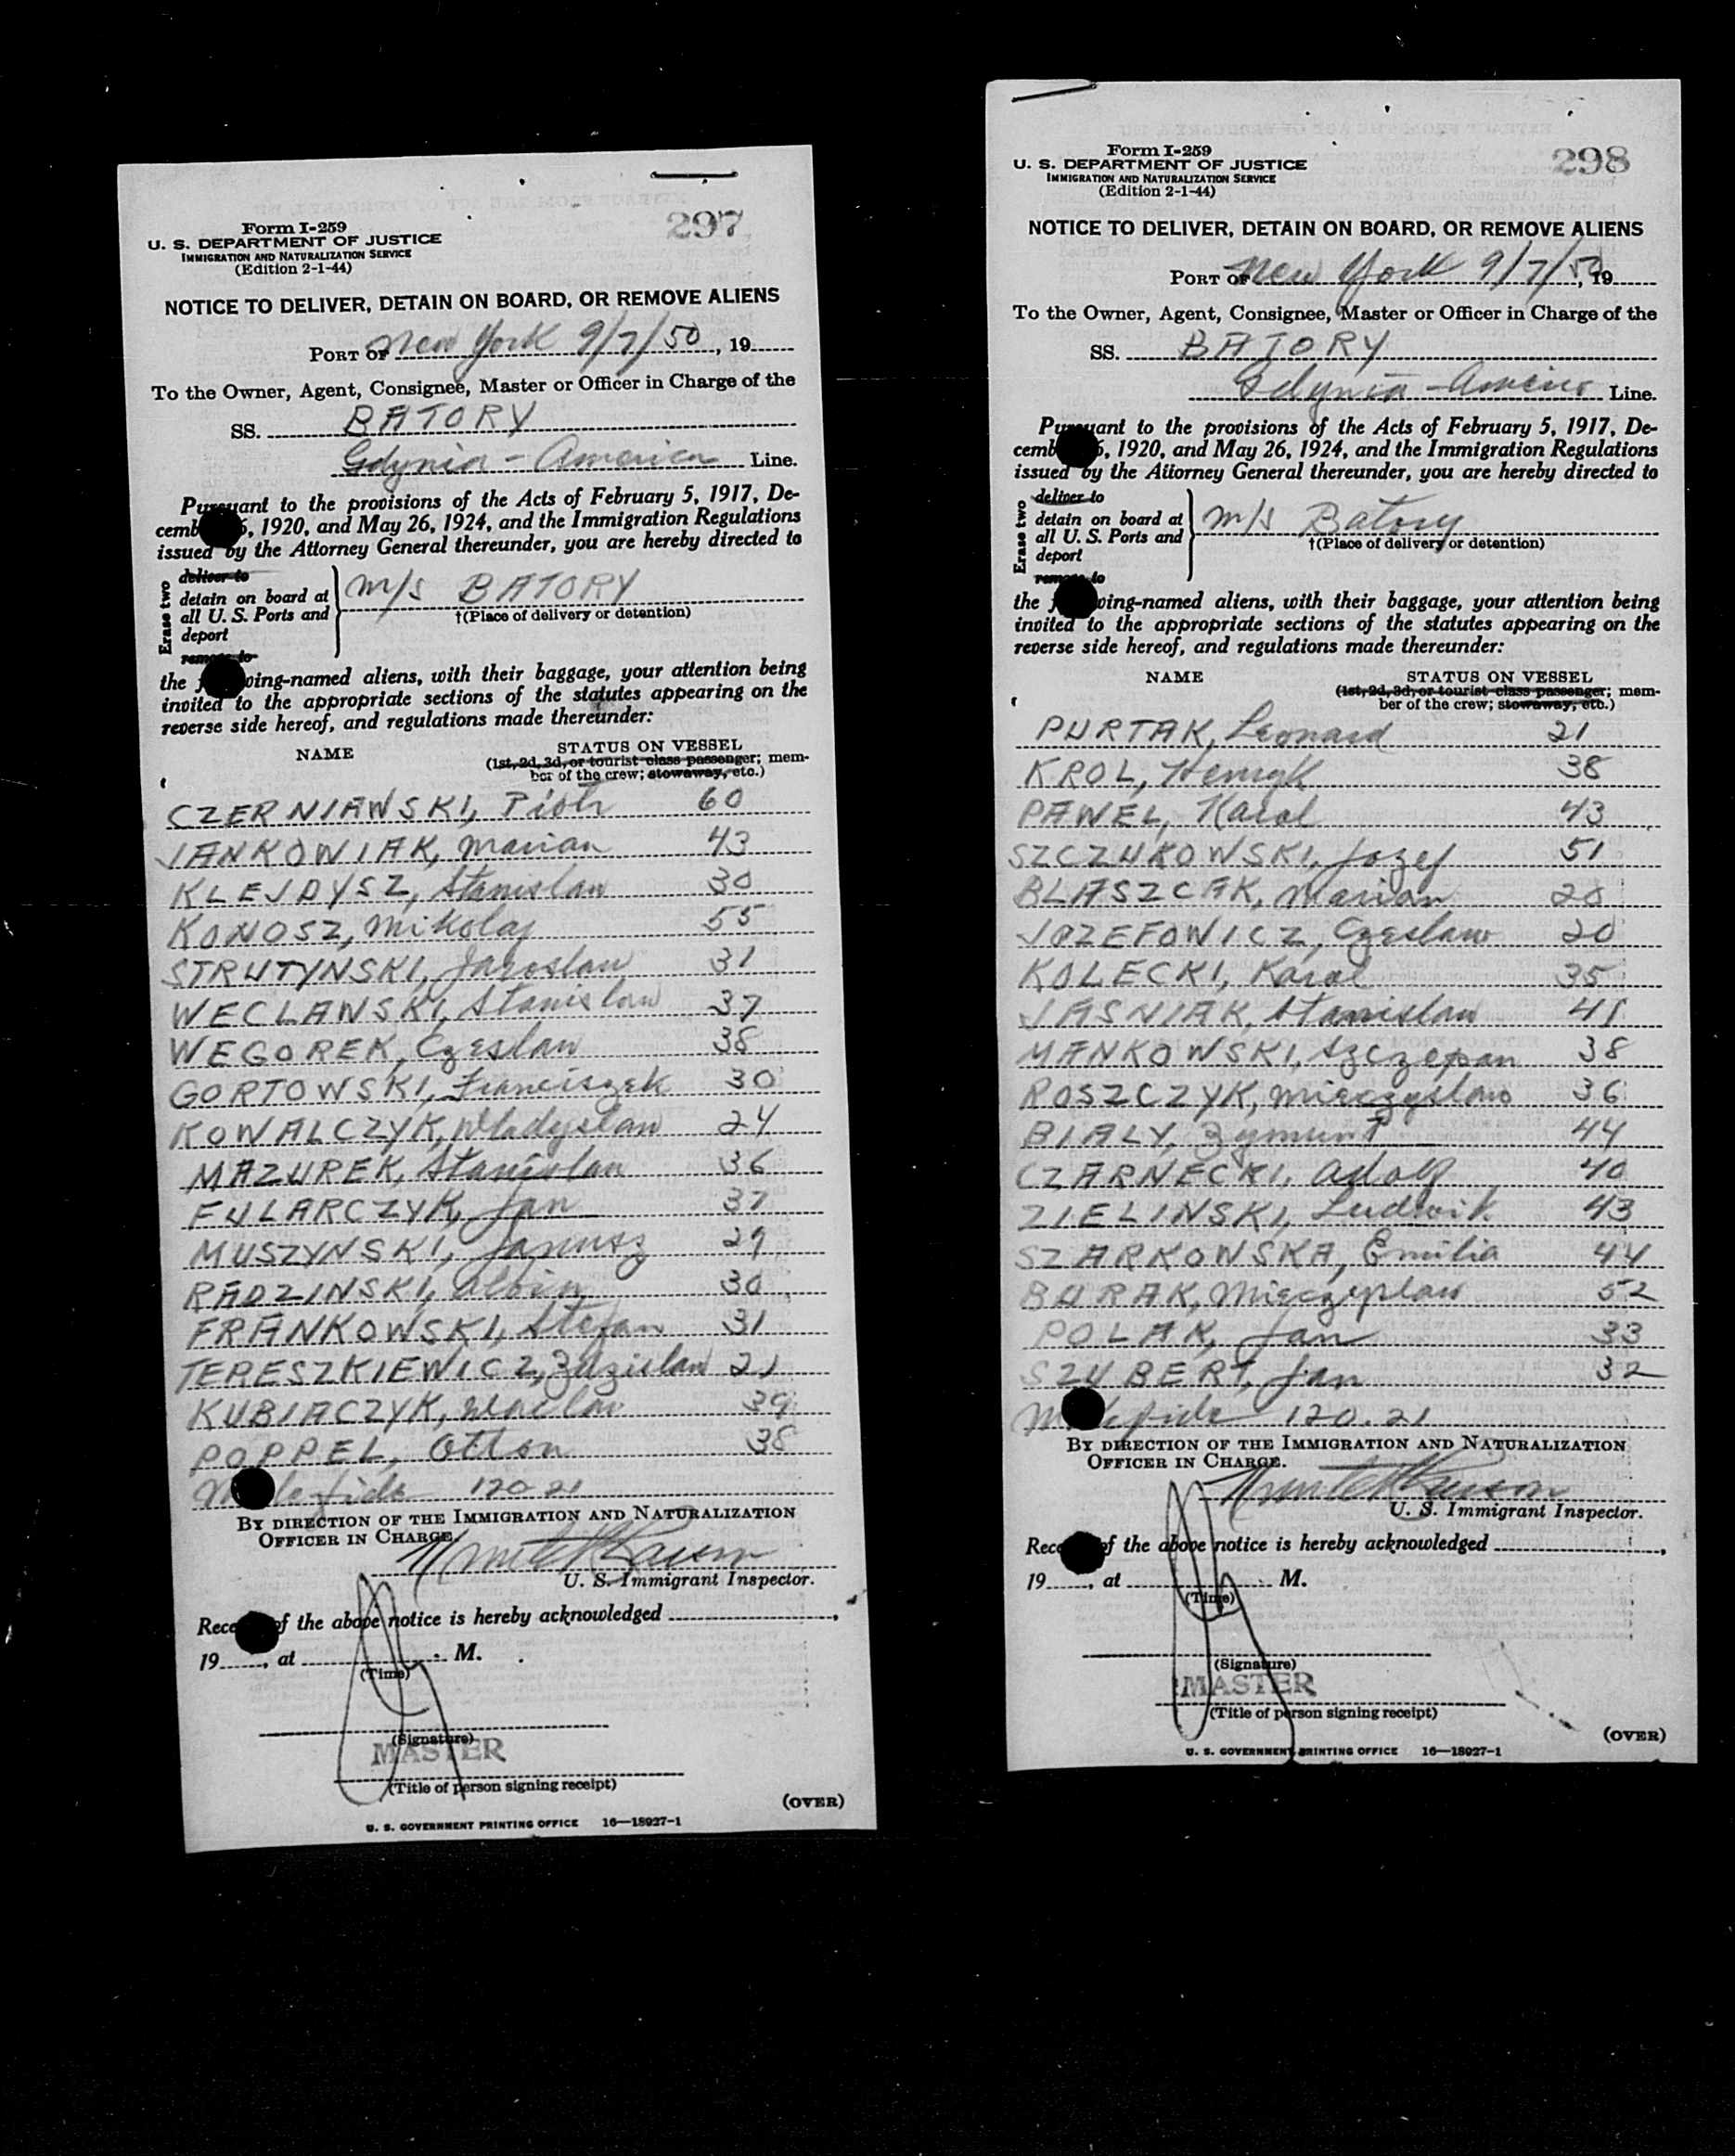 297
Form I-259
U. S. DEPARTMENT OF JUSTICE
IMMIGRATION AND NATURALIZATION SERVICE
(Edition 2-1-44)
NOTICE TO DELIVER, DETAIN ON BOARD, OR REMOVE ALIENS
PORT OF New York 9/7/50, 19
To the Owner, Agent, Consignee, Master or Officer in Charge of the
SS. BATORY
Gdynia - America Line.
Pursuant to the provisions of the Acts of February 5, 1917, De-
cemb 6, 1920, and May 26, 1924, and the Immigration Regulations
issued by the Attorney General thereunder, you are hereby directed to
Erase two
deliver to
detain on board at
all U. S. Ports and
deport
remove to
m/s BATORY
†(Place of delivery or detention)
the wing-named aliens, with their baggage, your attention being
invited to the appropriate sections of the statutes appearing on the
reverse side hereof, and regulations made thereunder:
NAME STATUS ON VESSEL
(1st, 2d, 3d, or tourist class passenger; mem-
ber of the crew; stowaway, etc.)
CZERNIAWSKI, Piotr 60
JANKOWIAK, Marian 43
KLEJDYSZ, Stanislaw 30
KONOSZ, Mikolaj 55
STRUTYNSKI, Jaroslaw 31
WECLAWSKI, Stanislaw 37
WEGOREK, Czeslaw 38
GORTOWSKI, Franciszek 30
KOWALCZYK, Wladyslaw 24
MAZUREK, Stanislaw 36
FULARCZYK, Jan 37
MUSZYNSKI, Janusz 29
RADZINSKI, Albin 30
FRANKOWSKI, Stefan 31
TERESZKIEWICZ, Zdzislaw 21
KUBIACZYK, Waclaw 39
POPPEL, Otton 38
fide 120.21
BY DIRECTION OF THE IMMIGRATION AND NATURALIZATION
OFFICER IN CHARGE.
U. S. Immigrant Inspector.
Rece of the above notice is hereby acknowledged
19 , at M.
(Time)
(Signature)
MASTER
(Title of person signing receipt)
(OVER)
U. S. GOVERNMENT PRINTING OFFICE 16—18927-1
298
Form I-259
U. S. DEPARTMENT OF JUSTICE
IMMIGRATION AND NATURALIZATION SERVICE
(Edition 2-1-44)
NOTICE TO DELIVER, DETAIN ON BOARD, OR REMOVE ALIENS
PORT OF New York 9/7/50, 19
To the Owner, Agent, Consignee, Master or Officer in Charge of the
SS. BATORY
Gdynia - America Line.
Pursuant to the provisions of the Acts of February 5, 1917, De-
cemb 6, 1920, and May 26, 1924, and the Immigration Regulations
issued by the Attorney General thereunder, you are hereby directed to
Erase two
deliver to
detain on board at
all U. S. Ports and
deport
remove to
m/s Batory
†(Place of delivery or detention)
the wing-named aliens, with their baggage, your attention being
invited to the appropriate sections of the statutes appearing on the
reverse side hereof, and regulations made thereunder:
NAME STATUS ON VESSEL
(1st, 2d, 3d, or tourist class passenger; mem-
ber of the crew; stowaway, etc.)
PURTAK, Leonard 21
KROL, Henryk 38
PAWEL, Karol 43
SZCZUKOWSKI, Jozef 51
BLASZCAK, Marian 20
JOZEFOWICZ, Czeslaw 20
KOLECKI, Karol 35
JASNIAK, Stanislaw 41
MANKOWSKI, Szczepan 38
ROSZCZYK, Mieczyslaw 36
BIALY, Zymunt 44
CZARNECKI, Adolf 40
ZIELINSKI, Ludwik 43
SZARKOWSKA, Emilia 44
BURAK, Mieczyslaw 52
POLAK, Jan 33
SZUBERT, Jan 32
fide 120.21
BY DIRECTION OF THE IMMIGRATION AND NATURALIZATION
OFFICER IN CHARGE.
U. S. Immigrant Inspector.
Rece of the above notice is hereby acknowledged
19 , at M.
(Time)
(Signature)
MASTER
(Title of person signing receipt)
(OVER)
U. S. GOVERNMENT PRINTING OFFICE 16—18927-1